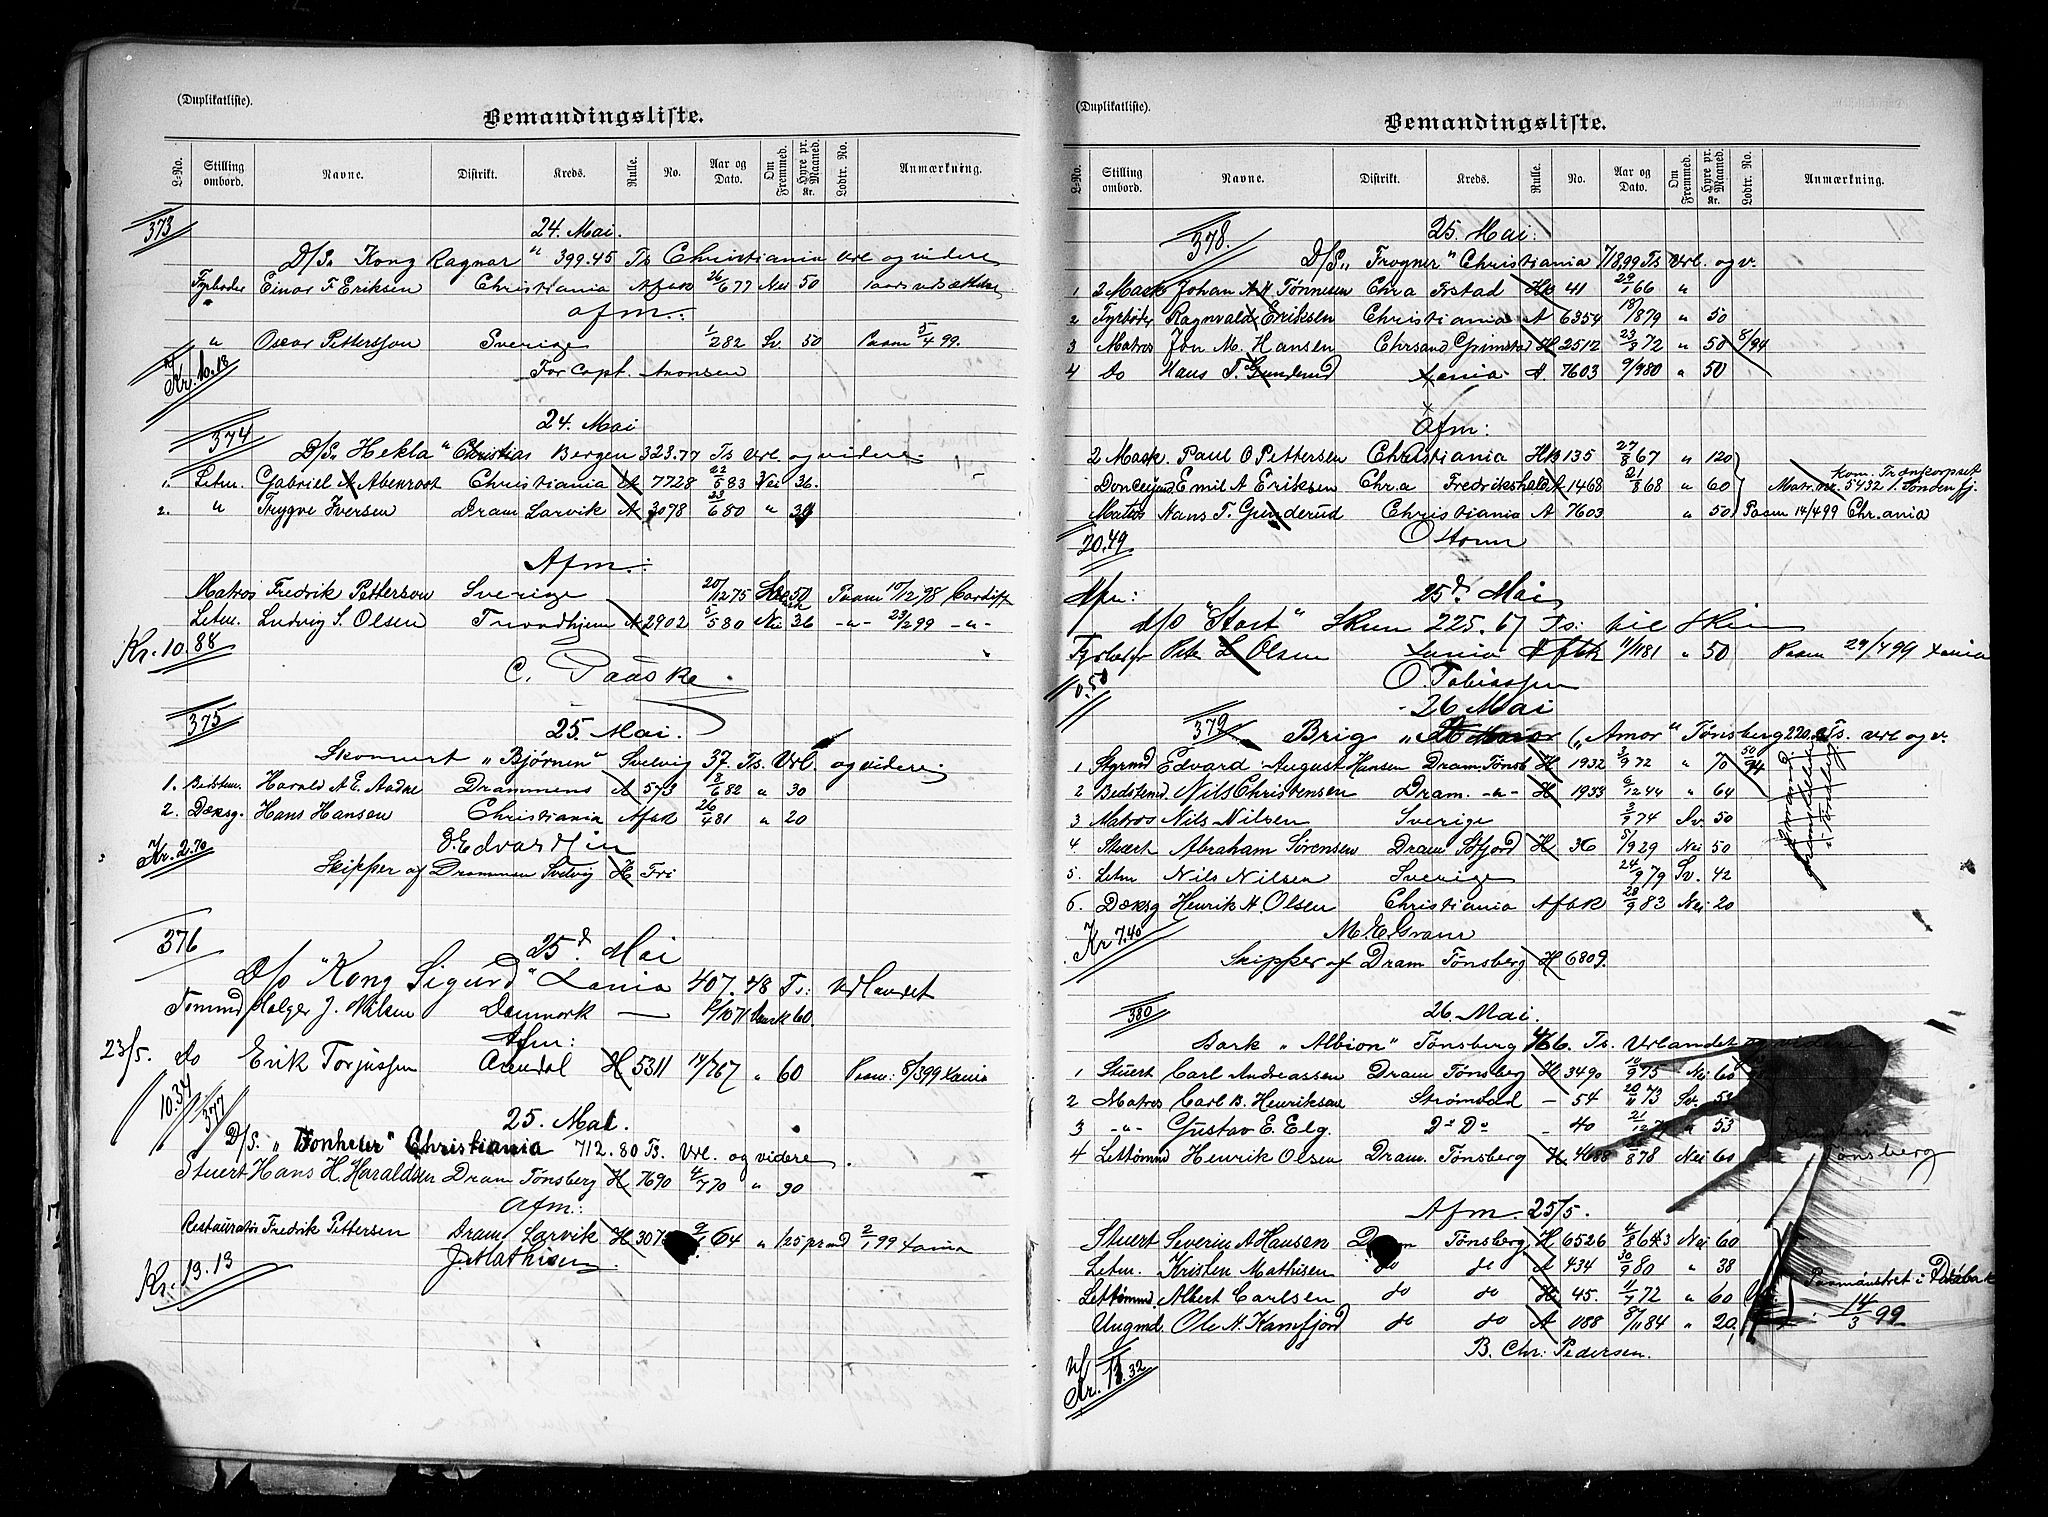 (Duplikatliste).
Bemandingsliste.
L-No. Stilling ombord. Navne. Distrikt. Kreds. Rulle. No. Aar og Dato. Om Fremmed. Hyre pr. Maaned. Kr. Lodtr. No. Anmærkning.
373
24. Mai.
D/S „Kong Ragnar" 399.45 Ts Christiania Url og videre
Fyrbøder Einar F Eriksen Christiania Afbk 26/6 77 Nei 50
afm.:
" Oscar Pettersson Sverige 1/2 82 Sv. 50 Paam 5/4 99.
Kr. 10.18
For Capt. Aronsen
24. Mai
374
D/S „Hekla" Bergen 323.77 Ts Url og videre
1. Letm. Gabriel A Abenroot Christiania A 7728 22/5 83 Nei 36.
2. " Trygve Iversen Dram Larvik A 3078 23/6 80 "
Afm.:
Matros Fredrik Petterson Sverige 20/12 75 50 Paam 10/12 98 Cardiff
Letm. Ludvig S. Olsen Trondhjem A 2902 5/5 80 Nei 36 -"- 23/2 99 -"-
Kr. 10.88
C. Paaske
375
25. Mai.
Skonnert „Bjørnen" Svelvig 37. Ts. Url. og videre
1. Bestm. Harald A E. Aadne Drammens A 573 8/6 82 " 30
2. Dæksg. Hans Hansen Christiania Afbk 26/4 81 " 20
Kr. 2.70
Skipper af Drammen Svelvig H Fri
376
25d Mai
D/S "Kong Sigurd" Xania 407.48 Ts: Udlandet
Tømmd Holger J. Nilsen Danmark — /10 71 Dansk 60.
Afm:
23/5. do Erik Torjussen Arendal H 5311 14/7 67 " 60 Paam: 8/3 99 Xania
10.34
377
25. Mai.
D/S. „Donheur" Christiania 712.80 Ts. Url. og videre.
Stuert Hans H. Haraldsen Dram Tønsberg H 7690 4/7 70 " 90
Afm:
Restauratør Fredrik Pettersen Dram Larvik H 307 64 " 125 pr md 2/1 99 Xania
J. Mathisen.
Kr. 13.13
(Duplikatliste).
Bemandingsliste.
L-No. Stilling ombord. Navne. Distrikt. Kreds. Rulle. No. Aar og Dato. Om Fremmed. Hyre pr. Maaned. Kr. Lodtr. No. Anmærkning.
378.
25. Mai.
D/S „Frogner" Christiania 718,99 Ts Url. og v.
1 2 Mask Johan A H Tønnesen Chr a Irstad Hb 41 29/1 66 "
2 Fyrbøder Ragnvald Eriksen Christiania A 6354 18/8 79 " 50
3 Matros Jon M. Hansen Chrsand Grimstad H 2512 23/8 72 " 50 8/94
4 do Hans T. Gunderud Xania A. 7603 9/9 80 " 50
Afm:
2 Mask. Paul O Pettersen Christiania Hb 135 27/8 67 " 120
Donkeymd Emil A Eriksen Chr.a Fredrikshald A 1468 21/8 68 " 60
Matros Hans T. Gunderud Christiania A 7603 " 50 Paam 14/4 99 Chr.ania
20.49
O Storm
25d Mai
d/s "Start" Skien 225.67 Ts: til Skien
Fyrbøder Pete L Olsen Xania Afbk 11/11 81 " 50 Paam 29/4 99 Xania
10.50
O. Tobiassen
26 Mai
379
Brig „Amor" Tønsberg 220, Ts. Url og v.
1 Styrmd Edvard August Hansen Dram. Tønsb H 1932 3/9 72 " 70
2 Bedstemd Nils Christensen Dram. -"- H 1933 6/12 44 " 64
3 Matros Nils Nilsen Sverige 3/9 74 Sv. 50
4 Stuert Abraham Sørensen Dram H 36 5/9 29 Nei 50
5. Letm Nils Nilsen Sverige 24/9 79 Sv. 42
6. Dæksg Henrik A. Olsen Christiania Afbk 28/9 83 Nei 20
Kr 7.40
M. E. Gram
Skipper af Dram Tønsberg H 6809.
380
26. Mai.
Bark „Albion" Tønsberg 466. Ts. Urlandet
1 Stuert Carl Andreassen Dram Tønsberg H 3490 10/9 75 Nei 60
2 Matros Carl B. Henriksen Strømstad - 54 20/11 73 Sv.
3 -"- Gustav E. Elg. Do Do - 40 53
4 Lettømmd Henrik Olsen Dram. Tønsberg H 4688 /8 78 Nei 60 Tønsberg
Afm. 25/5.
Stuert Severin A Hansen Tønsberg H 6526 Nei 60
Letm. Kristen Mathisen do do A 434 30/9 80 " 38
Lettømmd. Albert Carlsen do do H 45. 72 " 60
Ungmd. Ole A. Kamfjord do do A 1188 /11 84 " 20, 14/3 99
B. Chr. Pedersen.